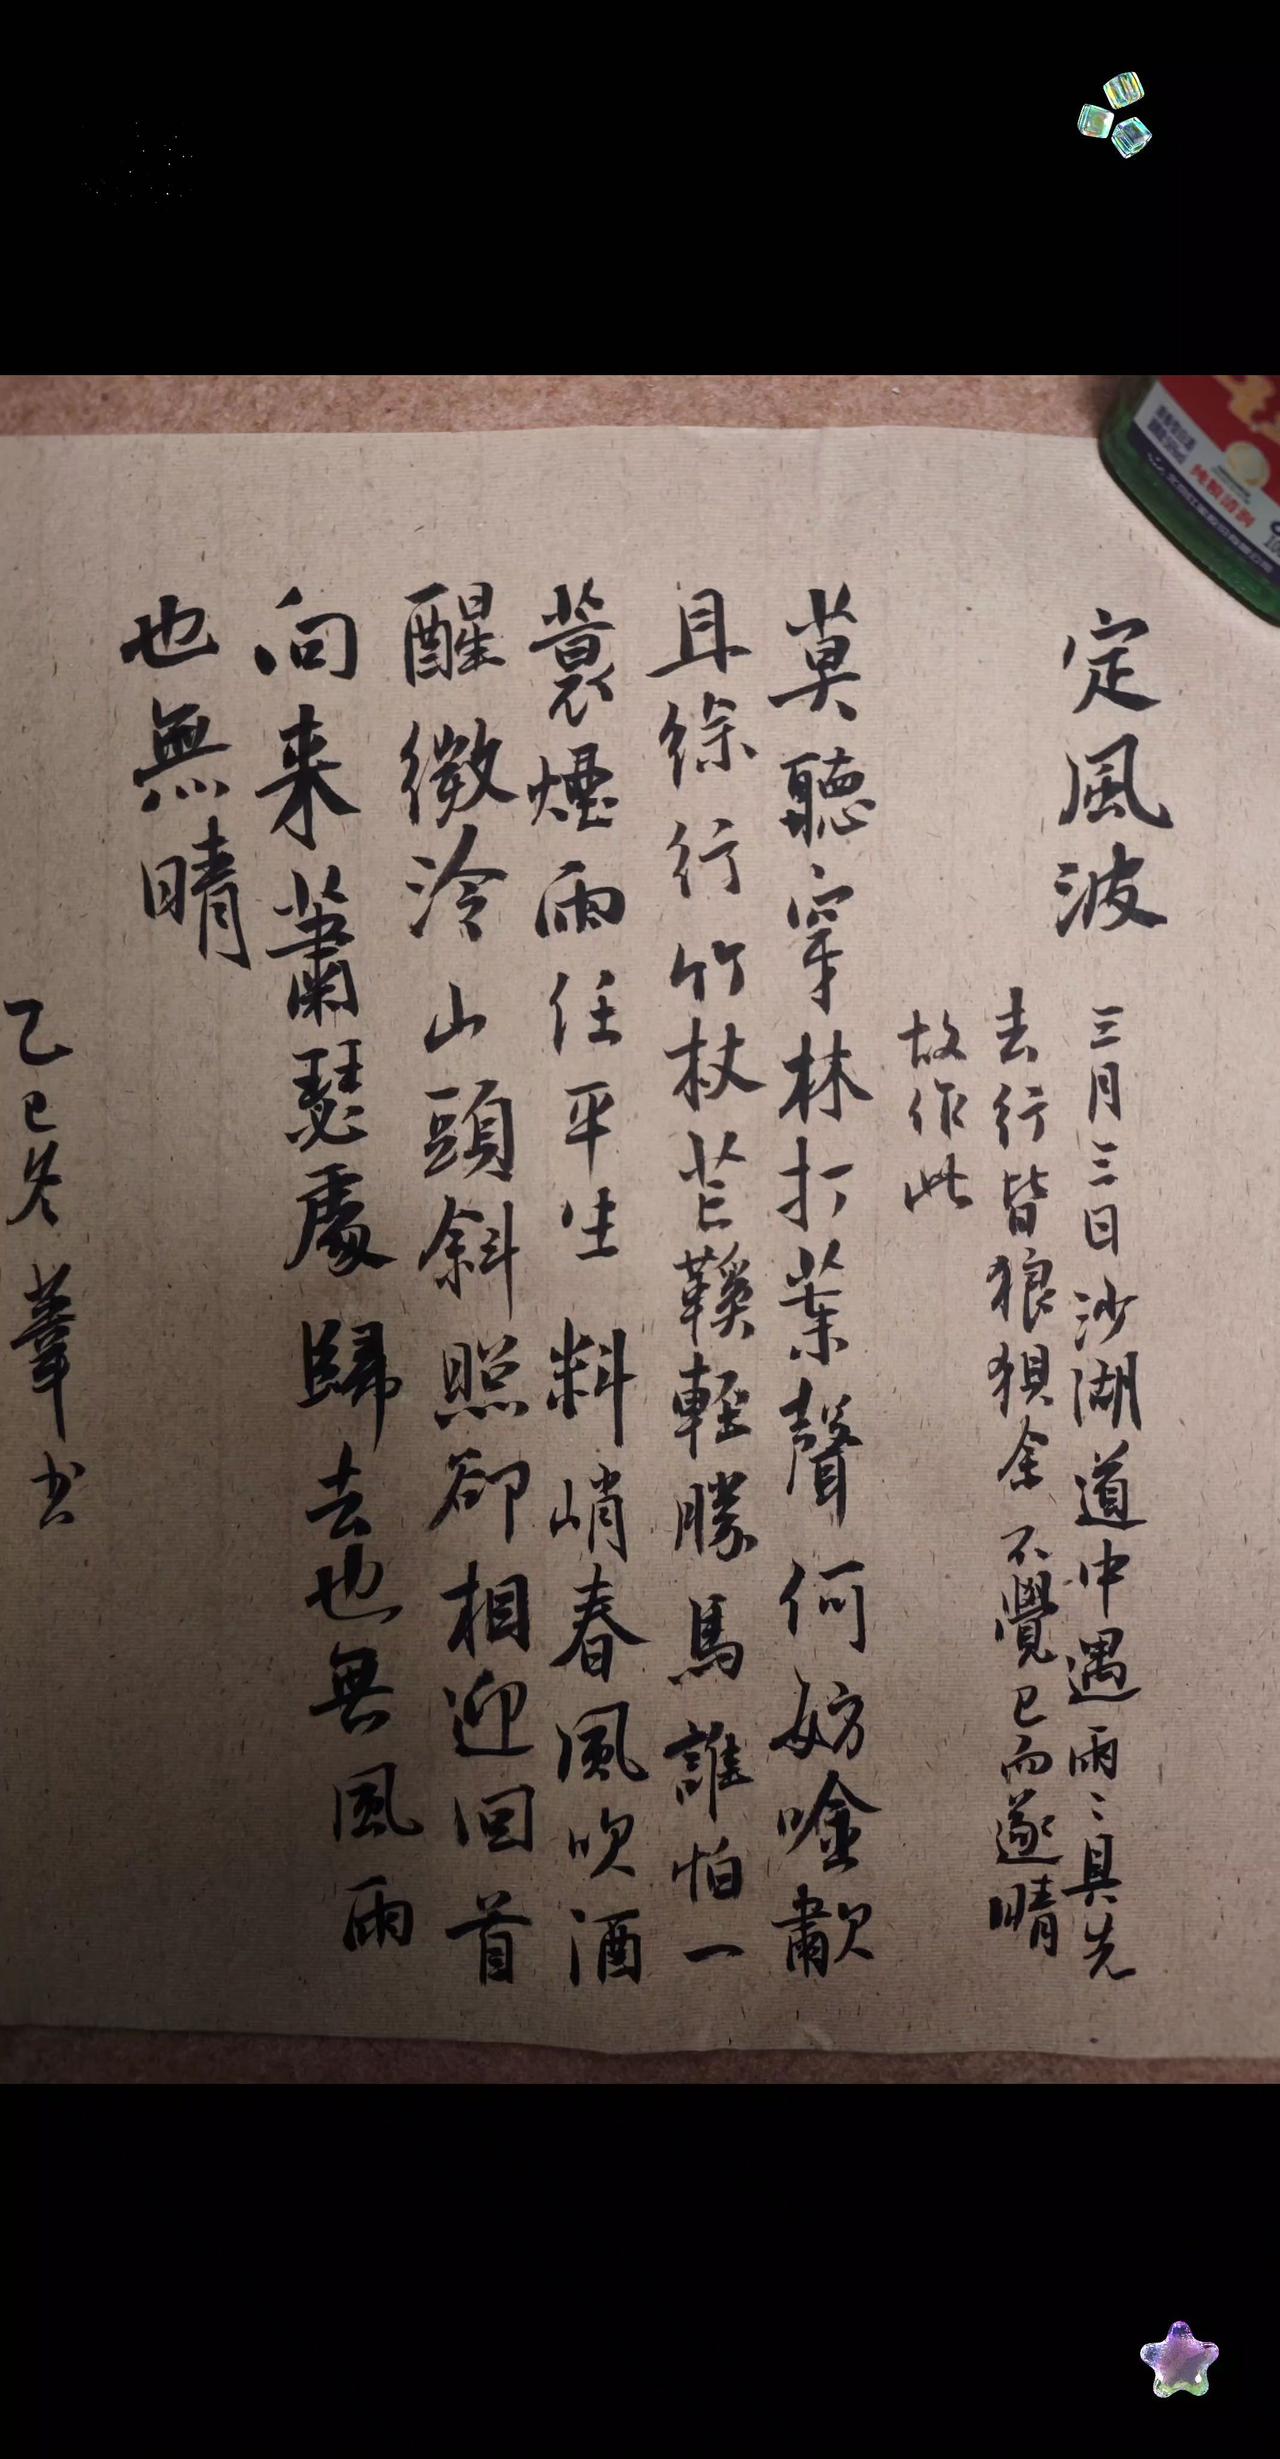 定風波
三月三日沙湖道中遇雨〻具先
去行皆狼狽余不覺已而遂晴
故作此
莫聽穿林打葉聲何妨唫歗
且徐行竹杖芒鞵輕勝馬誰怕一
蓑煙雨任平生料峭春風吹酒
醒微冷山頭斜照卻相迎回首
向来蕭瑟處歸去也無風雨
也無晴
乙巳冬
书
纯粮清香